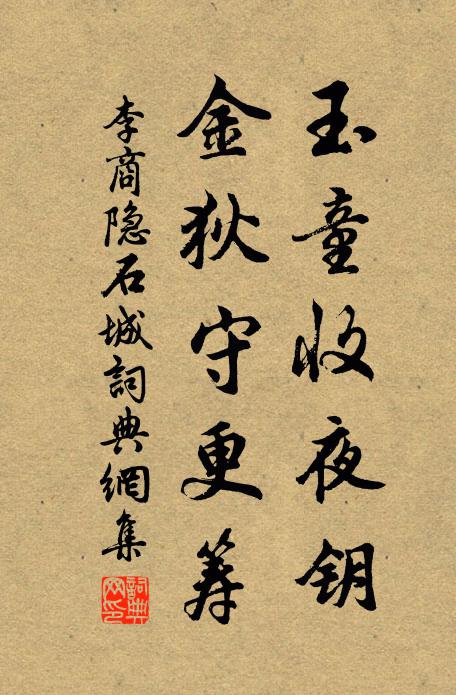 玉童收夜钥
金狄守更筹
李商隐石城詞典網集
詞典网印